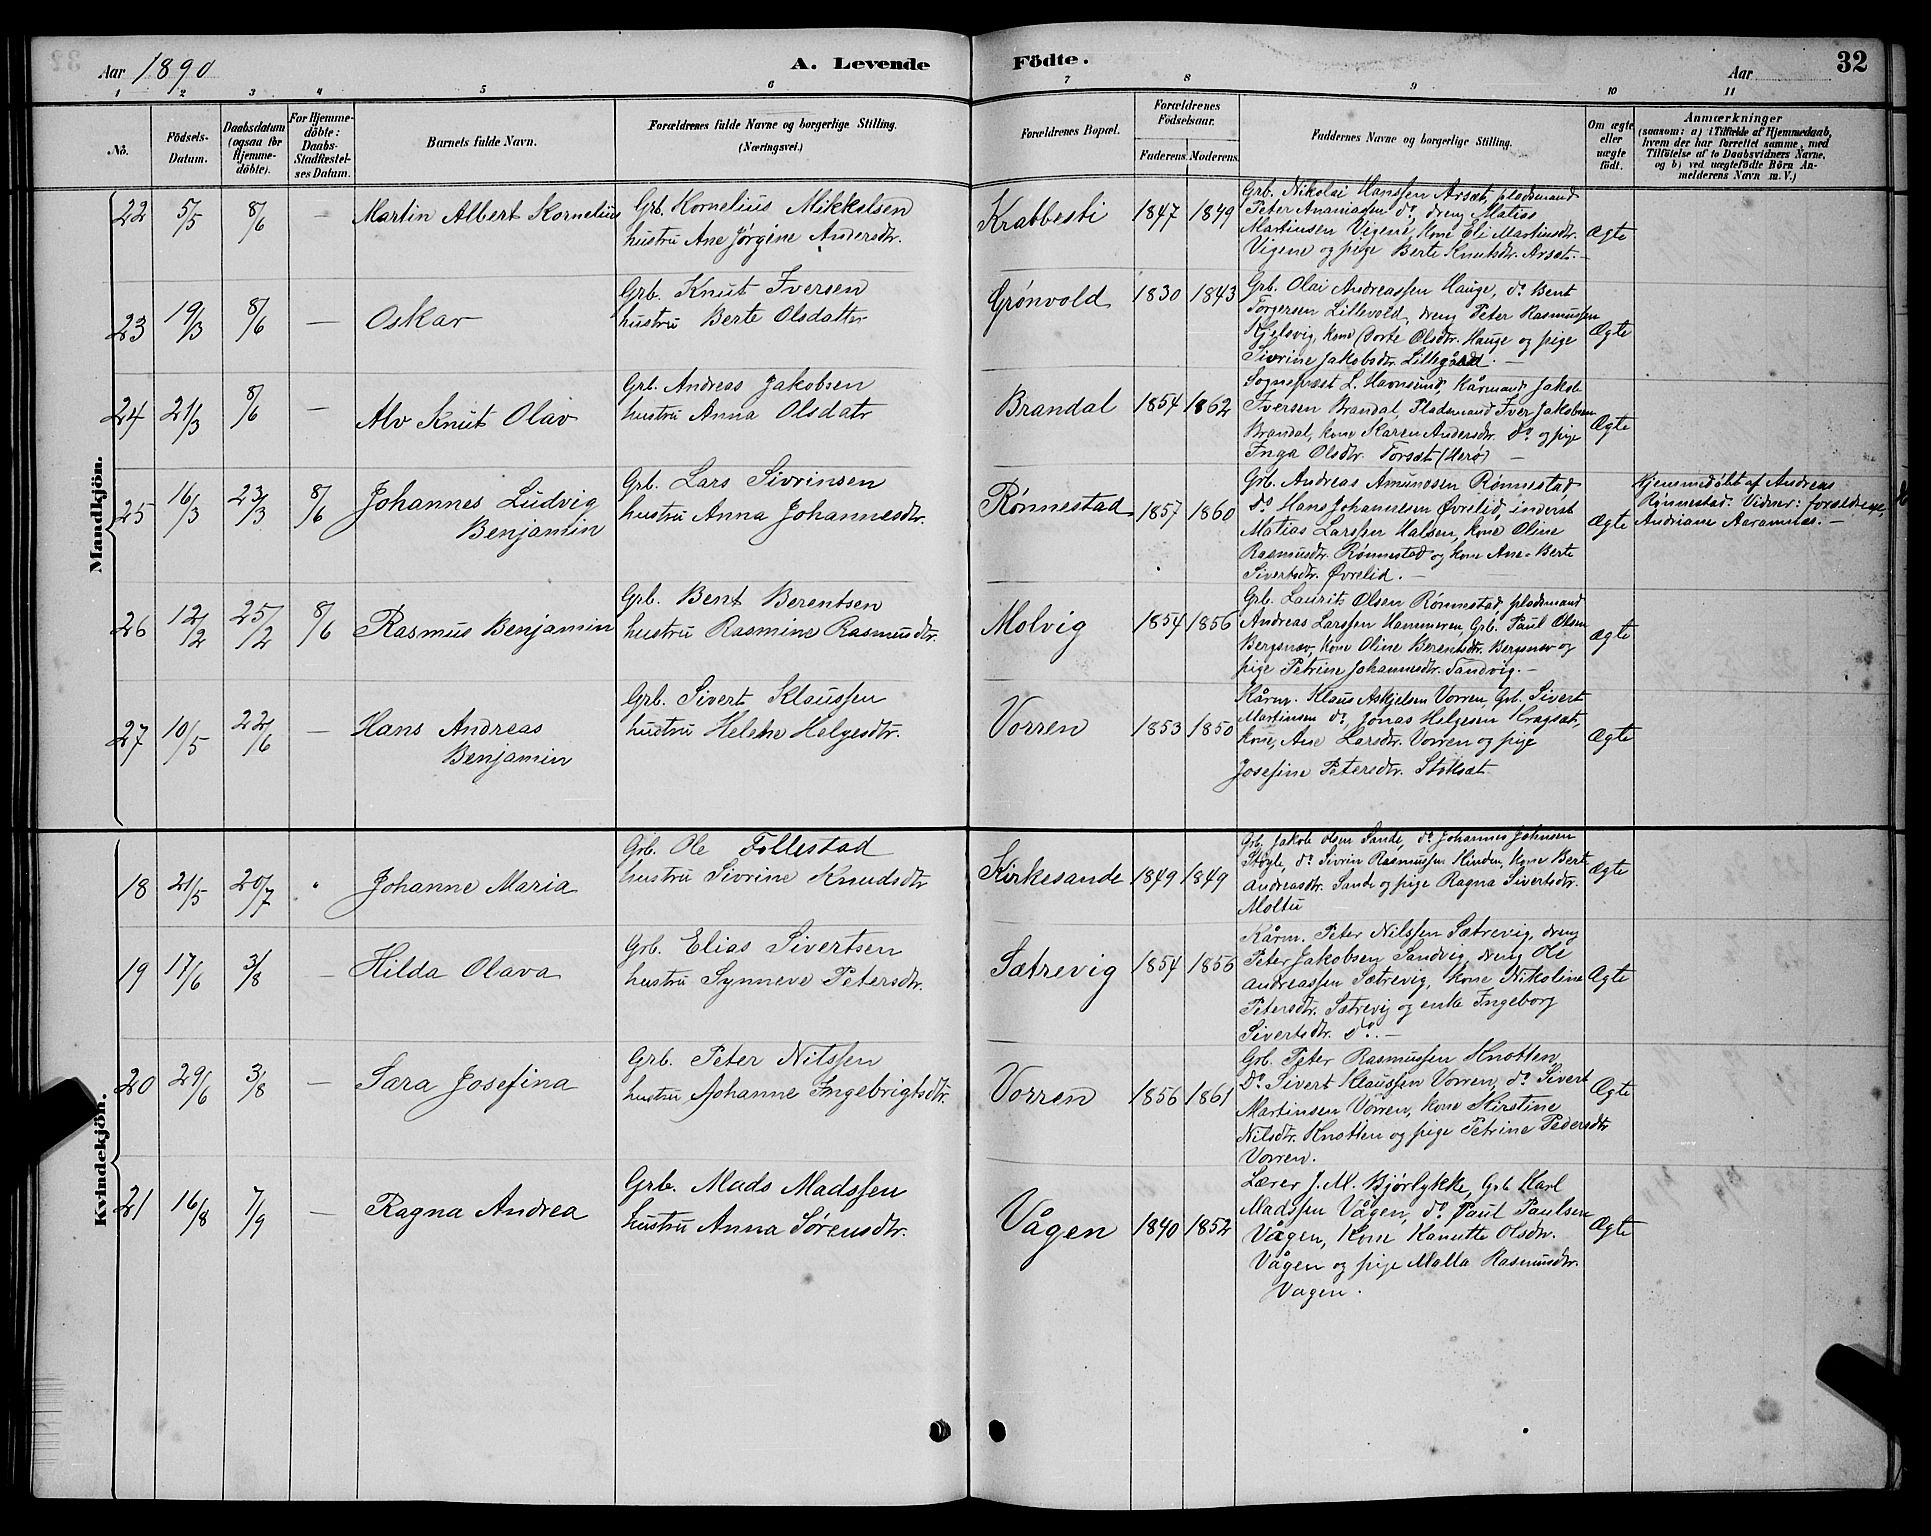 Aar 1890
A. Levende Födte.
Aar
32
1 2 3 4 5 6 7 8 9 10 11
No.
Födsels-Datum.
Daabsdatum (ogsaa for Hjemme-döbte).
For Hjemme-döbte: Daabs-Stadfæstel-ses Datum.
Barnets fulde Navn.
Forældrenes fulde Navne og borgerlige Stilling.
(Næringsvei.)
Forældrenes Bopæl.
Forældrenes Födselsaar.
Faderens. Moderens.
Faddernes Navne og borgerlige Stilling.
Om ægte eller uægte födt.
Anmærkninger
(saasom: a) i Tilfælde af Hjemmedaab, hvem der har forrettet samme, med Tilföielse af to Daabsvidners Navne, og b) ved uægtefödte Börn An-melderens Navn m. V.)
Mandkjön.
22 5/5 8/6 — Martin Albert Kornelius
Grb. Kornelius Mikkelsen
hustru Ane Jørgine Andersdtr.
Krabbesti 1847 1849
Grb. Nikolai Hanssen Arsæt, pladsmand
Peter Ananiassen do, dreng Matias
Martinsen Vigene, kone Eli Martinsdtr.
Vigene og pige Berte Knutsdtr. Arsæt.—
Ægte
23 19/3 8/6 — Oskar
Grb. Knut Iversen
hustru Berte Olsdatter
Grønvold 1830 1843
Grb. Olai Andreassen Hauge, do Bent
Torgersen Lillevold, dreng Peter Rasmussen
Kjelsvig, kone Dorte Olsdtr. Hauge og pige
Sivrine Jakobsdtr. Lillegård.—
Ægte
24 21/3 8/6 — Alv Knut Olav
Grb. Andreas Jakobsen
hustru Anna Olsdatr
Brandal 1854 1862
Sognepræst L. Havnsund, Kårmand Jakob
Iversen Brandal, Pladsmand Iver Jakobsen
Brandal, kone Karen Andersdtr. do og pige
Inga Olsdtr. Torsæt (Herø) —
Ægte
25 16/3 23/3 8/6 Johannes Ludvig
Benjamin
Grb. Lars Sivrinsen
hustru Anna Johannesdtr.
Rønnestad 1857 1860
Grb. Andreas Amundsen Rønnestad
do Hans Johannesen Øvrelid, inderst
Matias Larssen Halsen, kone Oline
Rasmusdtr. Rønnestad og kone Ane-Berte
Sivertsdtr. Øvrelid.—
Ægte
Hjemmedöbt af Andreas
Rønnestad. Vidner: forældrene,
Andriane Aaramnæs.—
26 12/2 25/2 8/6 Rasmus Benjamin
Grb. Bent Berentsen
hustru Rasmine Rasmusdtr.
Molvig 1854 1856
Grb. Laurits Olsen Rønnestad, pladsmand
Andreas Larssen Hammeren, Grb. Paul Olsen
Bergsnev, kone Oline Berentsdtr. Bergsnev og
pige Petrine Johannesdtr. Sandvig.—
Ægte
27 10/5 22/6 — Hans Andreas
Benjamin
Grb. Sivert Klaussen
hustru Helene Helgesdtr.
Vorren 1853 1850
Kårm. Klaus Askjelsen Vorren, Grb. Sivert
Martinsen do, Jonas Helgesen Kragsæt,
kone, Ane Larsdtr. Vorren og pige
Josefine Petersdtr. Stokset.
Ægte
Kvindekjön.
18 21/5 20/7 Johanne Maria
Grb. Ole Follestad
hustru Sivrine Knudsdtr
Kirkesande 1849 1849
Grb. Jakob Olsen Sande, do Johannes Johnsen
Støyle, do Sivrin Rasmussen Kinden, kone Bert
Andreasdtr. Sande og pige Ragna Sivertsdtr.
Moltu
Ægte
19 17/6 3/8 — Hilda Olava
Grb. Elias Sivertsen
hustru Synneve Petersdtr.
Sætrevig 1854 1856
Kårm. Peter Nilssen Sætrevig, dreng
Peter Jakobsen Sandvig, dreng Ole
Andreassen Sætrevig, kone Nikoline
Petersdtr. Sætrevig og enke Ingeborg
Sivertsdtr. do.—
Ægte
20 29/6 3/8 — Sara Josefina
Grb. Peter Nilssen
hustru Johanne Ingebrigtsdtr.
Vorren 1856 1861
Grb. Peter Rasmussen Knotten
do Sivert Klaussen Vorren, do Sivert
Martinsen Vorren, kone Kirstine
Nilsdtr. Knotten og pige Petrine Pedersdtr
Vorren.
Ægte
21 16/8 7/9 — Ragna Andrea
Grb. Mads Madssen
hustru Anna Sørensdtr.
Vågen 1840 1852
Lærer J. M. Bjørlykke, Grb Karl
Madssen Vågen, do Paul Paulsen
Vågen, Kone Kanutte Olsdtr.
Vågen og pige Malla Rasmusdtr.
Vågen.
Ægte